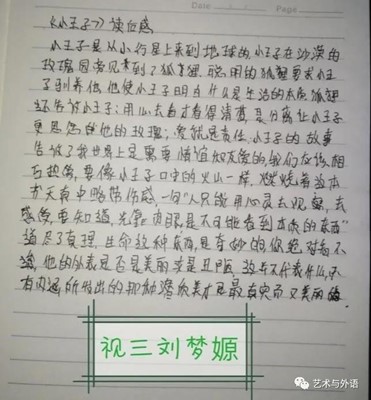 Date Page
《小王子》读后感
小王子是从小行星上来到地球的,小王子在沙漠的
玫瑰园旁见到了狐狸,聪明的狐狸要求小王
子驯养他,他使小王子明白什么是生活的本质,狐狸
还告诉小王子:用心去看才看得清楚,是分离让小王子
更思念他的玫瑰;爱就是责任,小王子的故事
告诉了我世界上是需要情谊和友爱的,我们应该相
互热爱,要像小王子口中的火山一样,燃烧着这本
书天真中略带伤感,一句"人只能用心灵去观察,去
感受,要知道,光靠肉眼是不可能看到本质的东西"
道尽了真理。生命这种东西,是奇妙的你绝对看不
他的外表是否是美丽或是丑陋,这并不代表什么,只
有内涵所指出的那种潜质美才是最真实而又美丽
视三刘梦嫄
艺术与外语